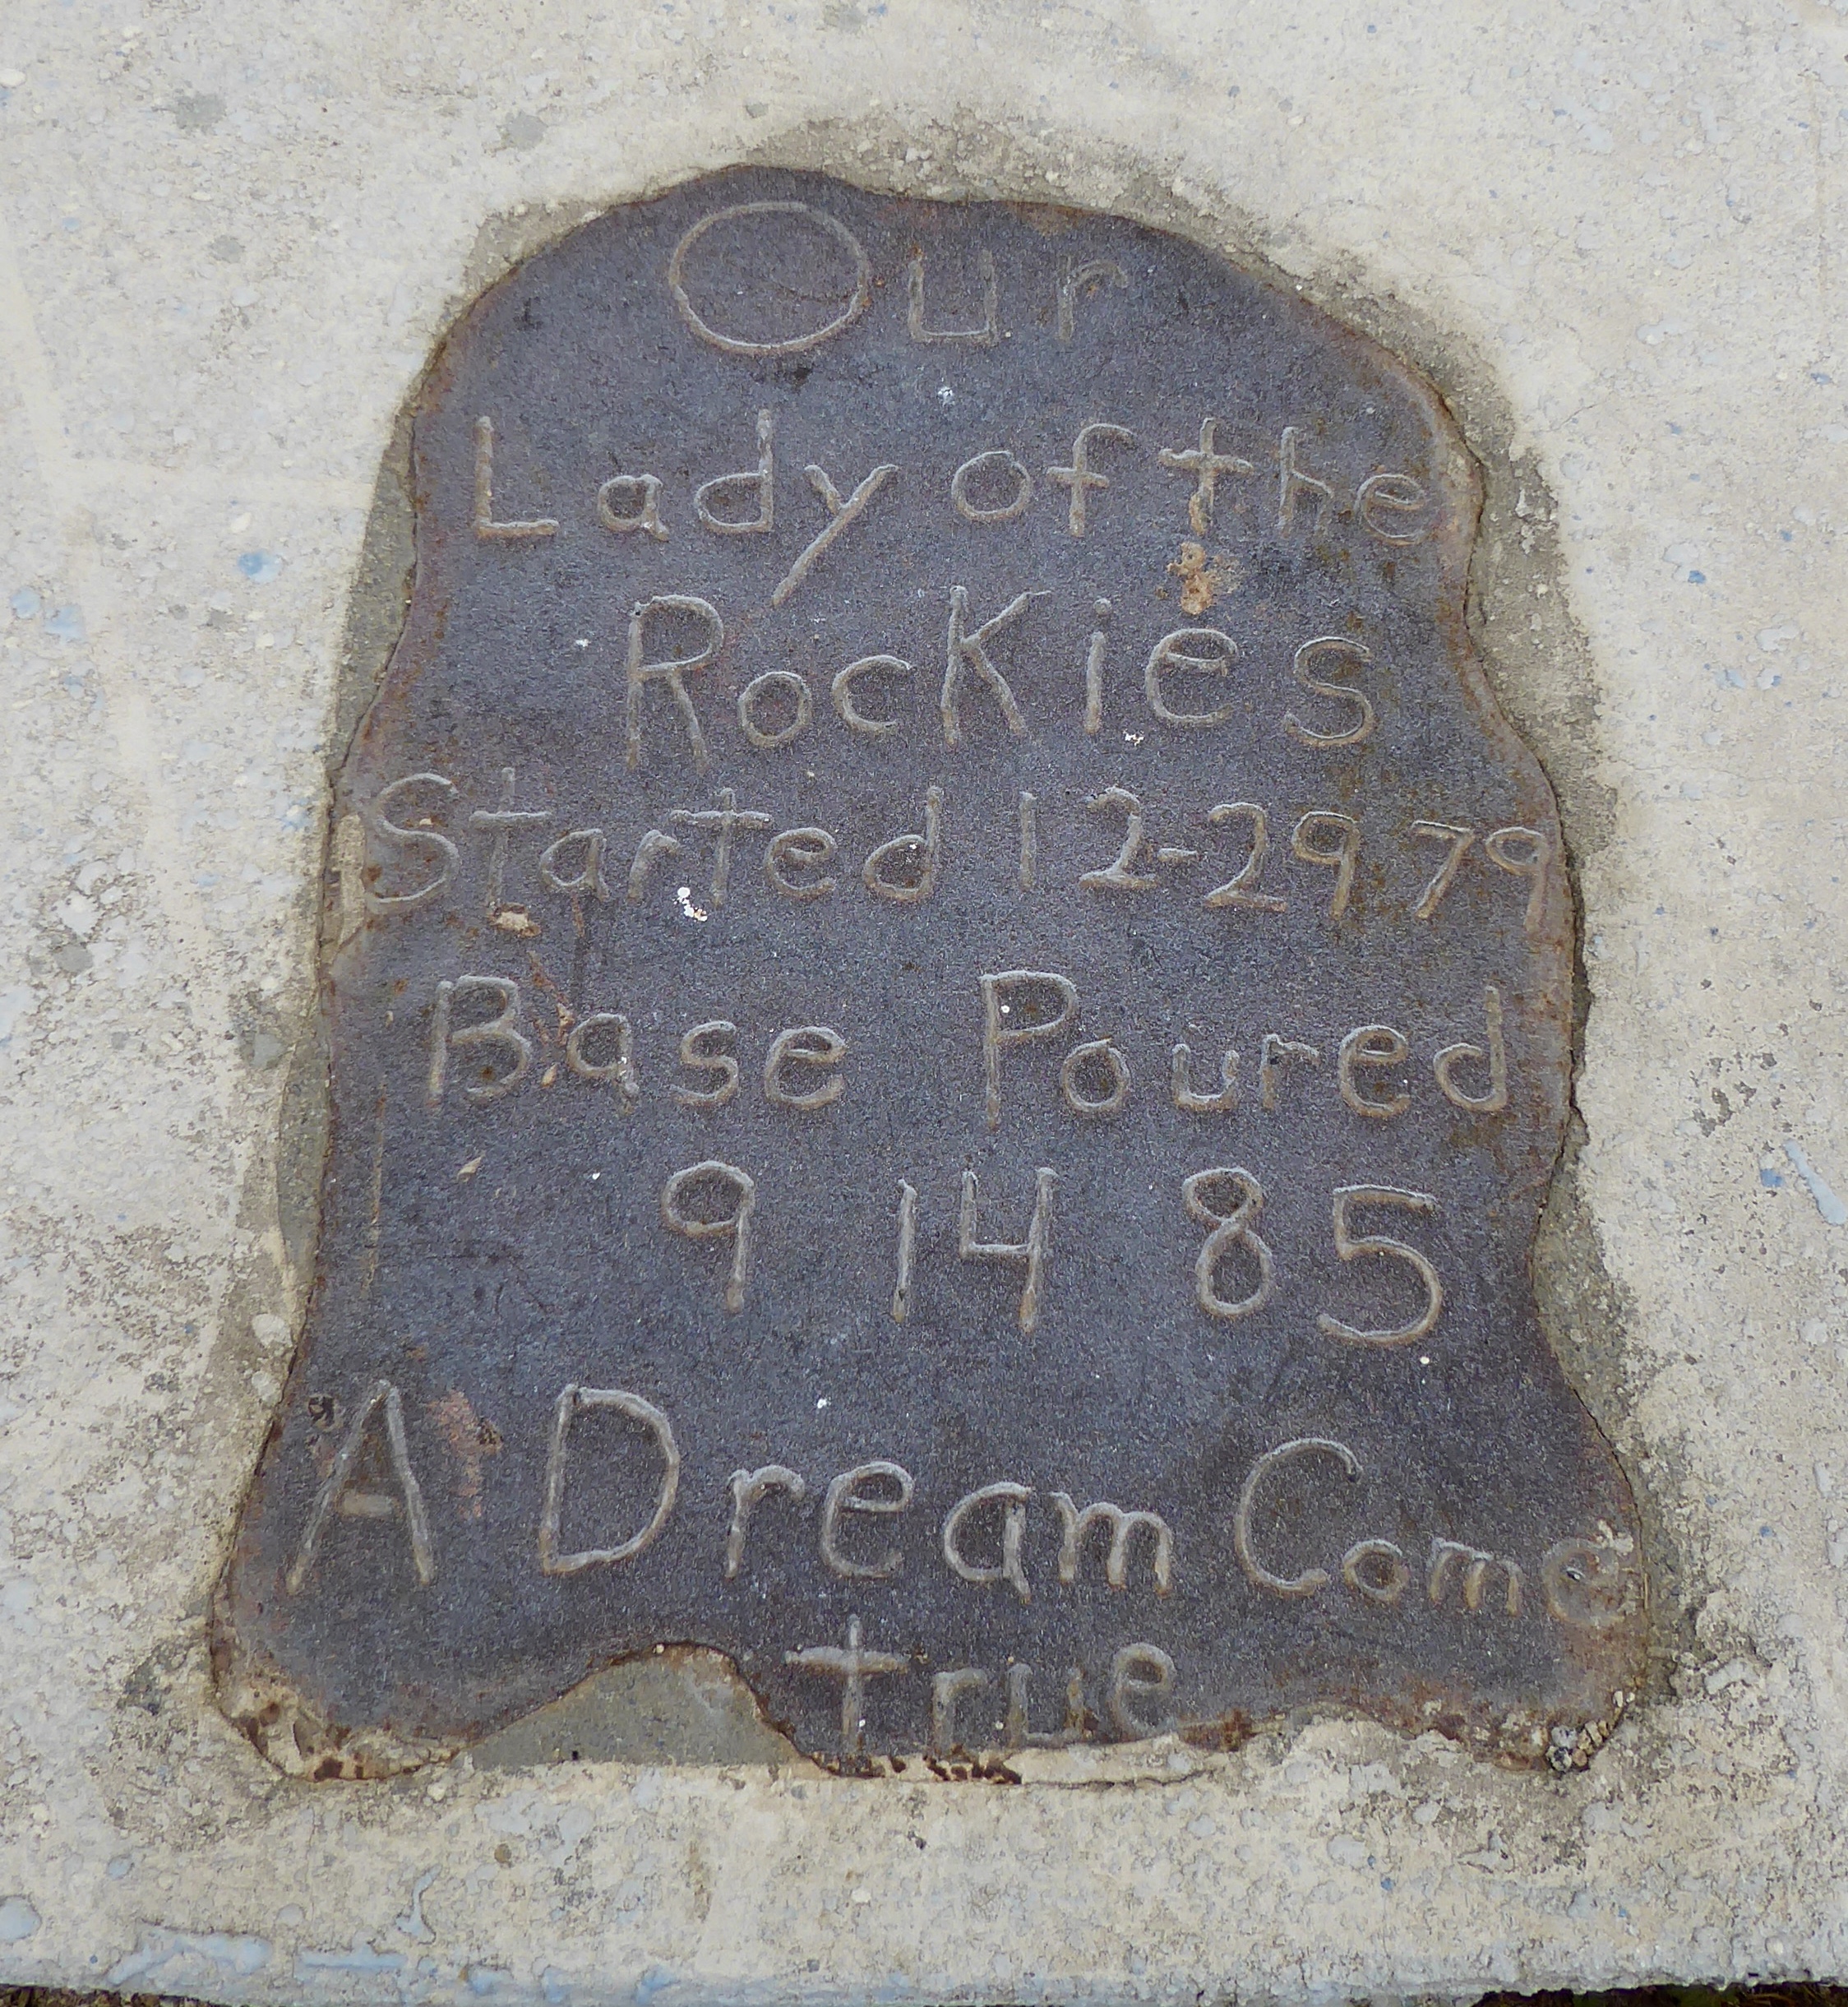 Our
Lady of the
Rockies
Started 12-29 79
Base Poured
9 14 85
A Dream Come
true